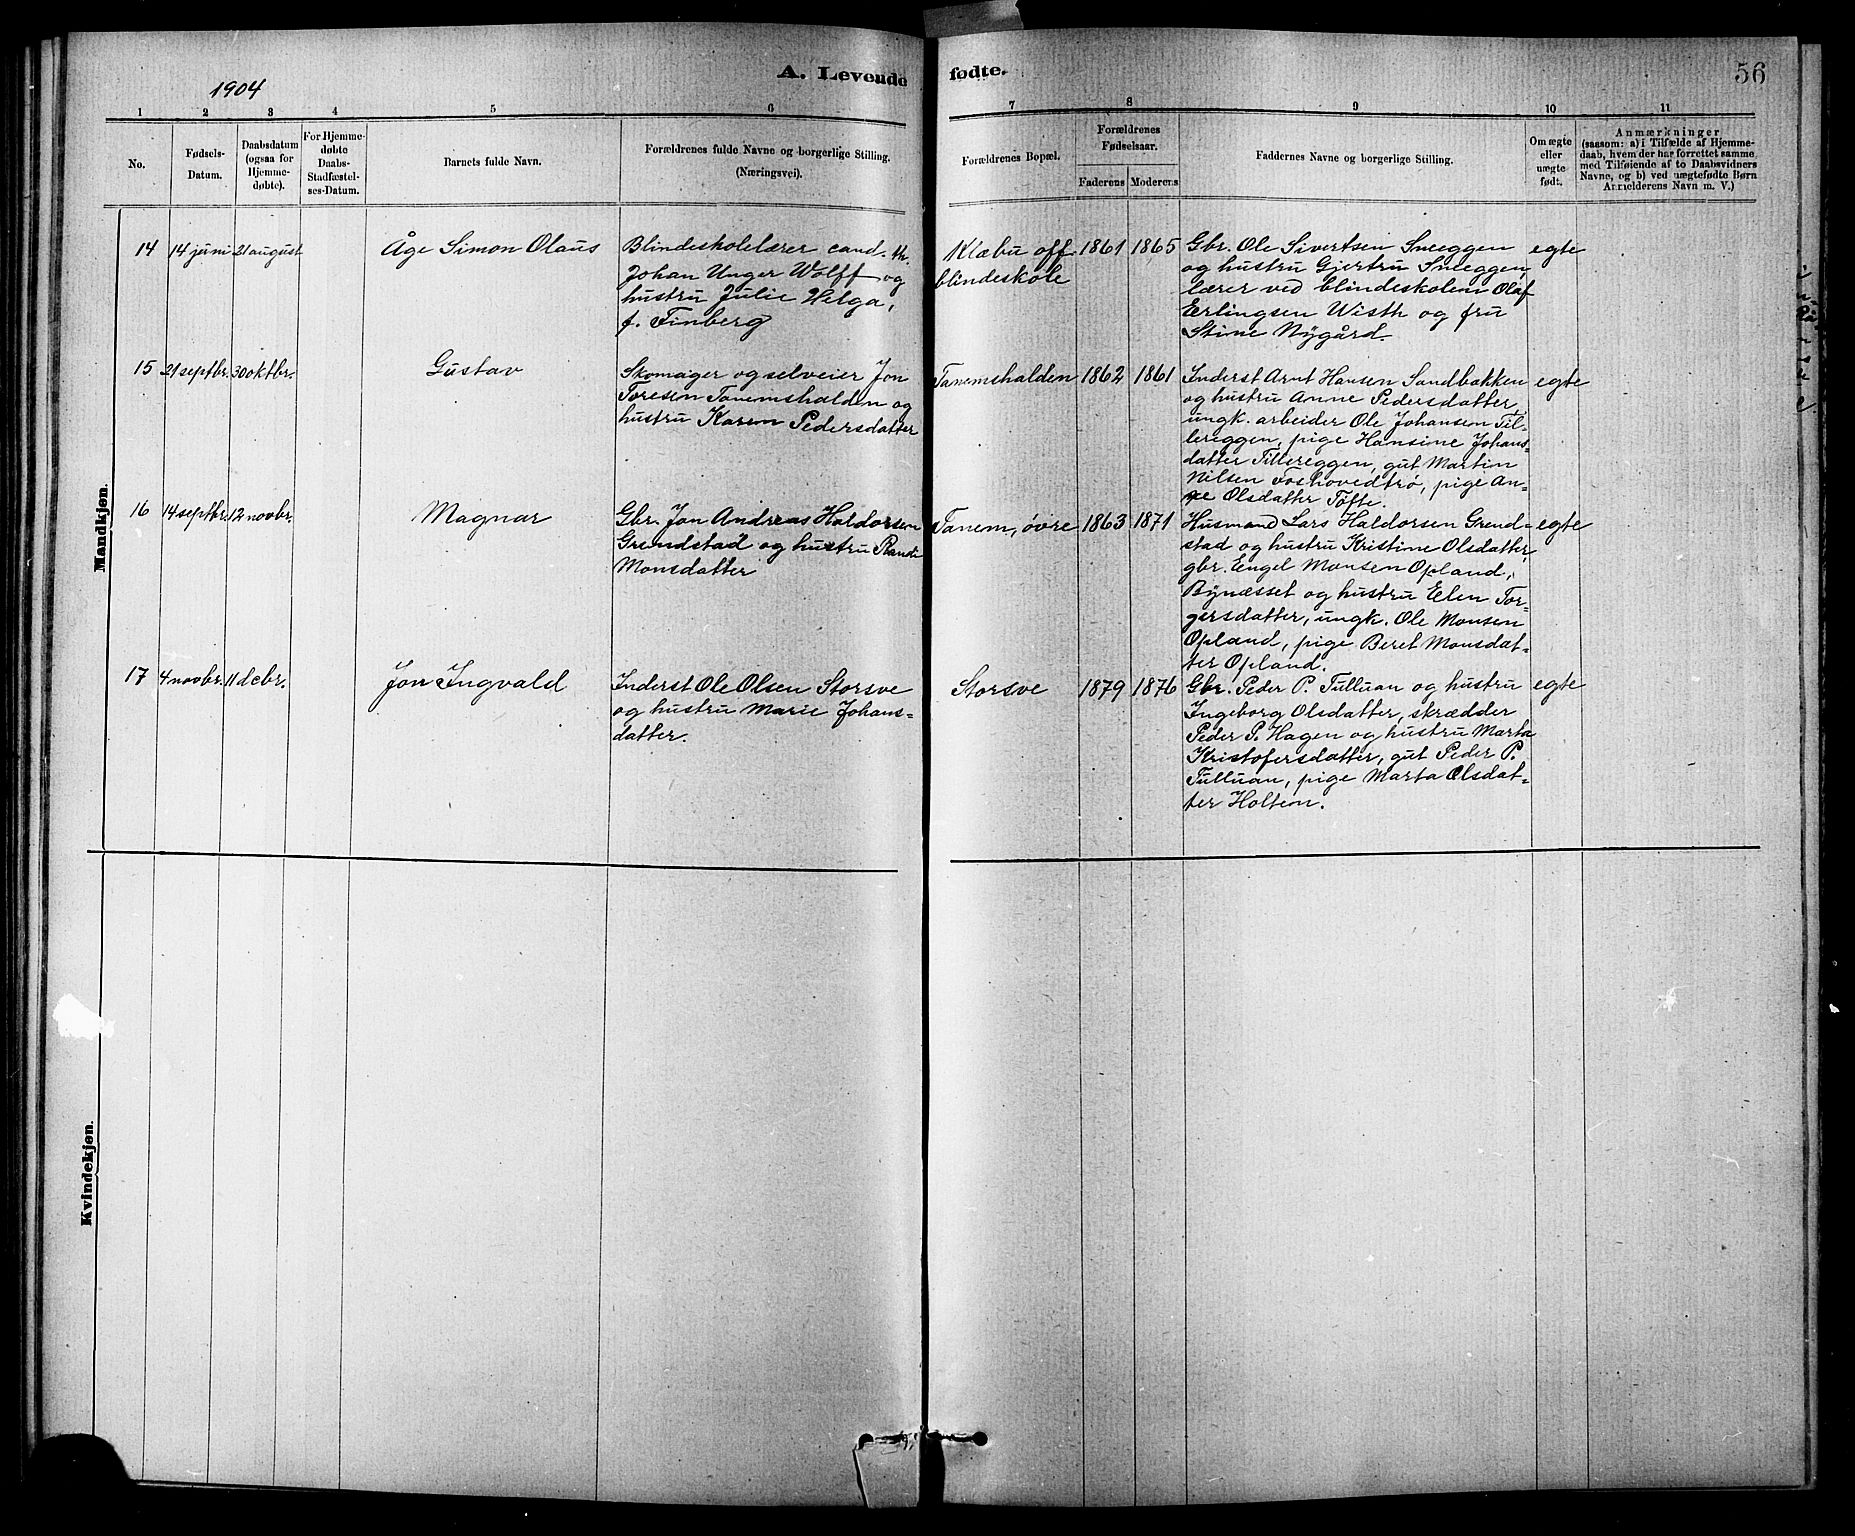 1904
A. Levende fødte.
56
1 2 3 4 5 6 7 8 9 10 11
No.
Fødsels-
Datum.
Daabsdatum
(ogsaa for
Hjemme-
døbte).
For Hjemme-
døbte
Daabs-
Stadfæstel-
ses-Datum.
Barnets fulde Navn.
Forældrenes fulde Navne og borgerlige Stilling.
(Næringsvei).
Forældrenes Bopæl.
Forældrenes
Fødselsaar.
Faderens Moderens
Faddernes Navne og borgerlige Stilling.
Om ægte
eller
uægte
født.
Anmærkninger
(saasom: a) i Tilfælde af Hjemme-
daab, hvem der har forrettet samme,
med Tilføiende af to Daabsvidners
Navne, og b) ved uægtefødte Børn
Anmelderens Navn m. V.)
Mandkjøn.
14 14 juni 21 august
Åge Simon Olaus
Blindeskolelærer cand. th.
Johan Unger Wolff og
hustru Julie Helga,
f. Finberg
Klæbu off.
blindeskole
1861 1865
Gbr. Ole Sivertsen Sneeggen
og hustru Gjertru Sneeggen,
lærer ved blindeskolen Olaf
Erlingsen Wisth og fru
Stine Nygård.
egte
15 21 septbr. 30 oktbr.
Gustav
Skomager og selveier Jon
Toresen Tanemshalden og
hustru Karen Pedersdatter
Tanemshalden
1862 1861
Inderst Arnt Hansen Sandbakken
og hustru Anne Pedersdatter,
ungk. arbeider Ole Johansen Til-
lereggen, pige Hansine Johans-
datter Tillereggen, gut Martin
Nilsen Foshovedtrø, pige An-
ne Olsdatter Tøfte.
egte
16 14 septbr. 12 novbr.
Magnar
Gbr. Jon Andreas Haldorsen
Grendstad og hustru Randi
Monsdatter
Tanem, øvre
1863 1871
Husmand Lars Haldorsen Grend-
stad og hustru Kristine Olsdatter,
gbr. Engel Monsen Opland,
Bynæsset og hustru Elen Tor-
gersdatter, ungk. Ole Monsen
Opland, pige Beret Monsdat-
ter Opland.
egte
17 4 novbr. 11 decbr.
Jon Ingvald
Inderst Ole Olsen Storsve
og hustru Marie Johans-
datter.
Storsve
1879 1876
Gbr. Peder P. Tulluan og hustru
Ingeborg Olsdatter, skrædder
Peder P. Hagen og hustru Marta
Kristofersdatter, gut Peder P.
Tulluan, pige Marta Olsdat-
ter Holten.
egte
Kvindekjøn.